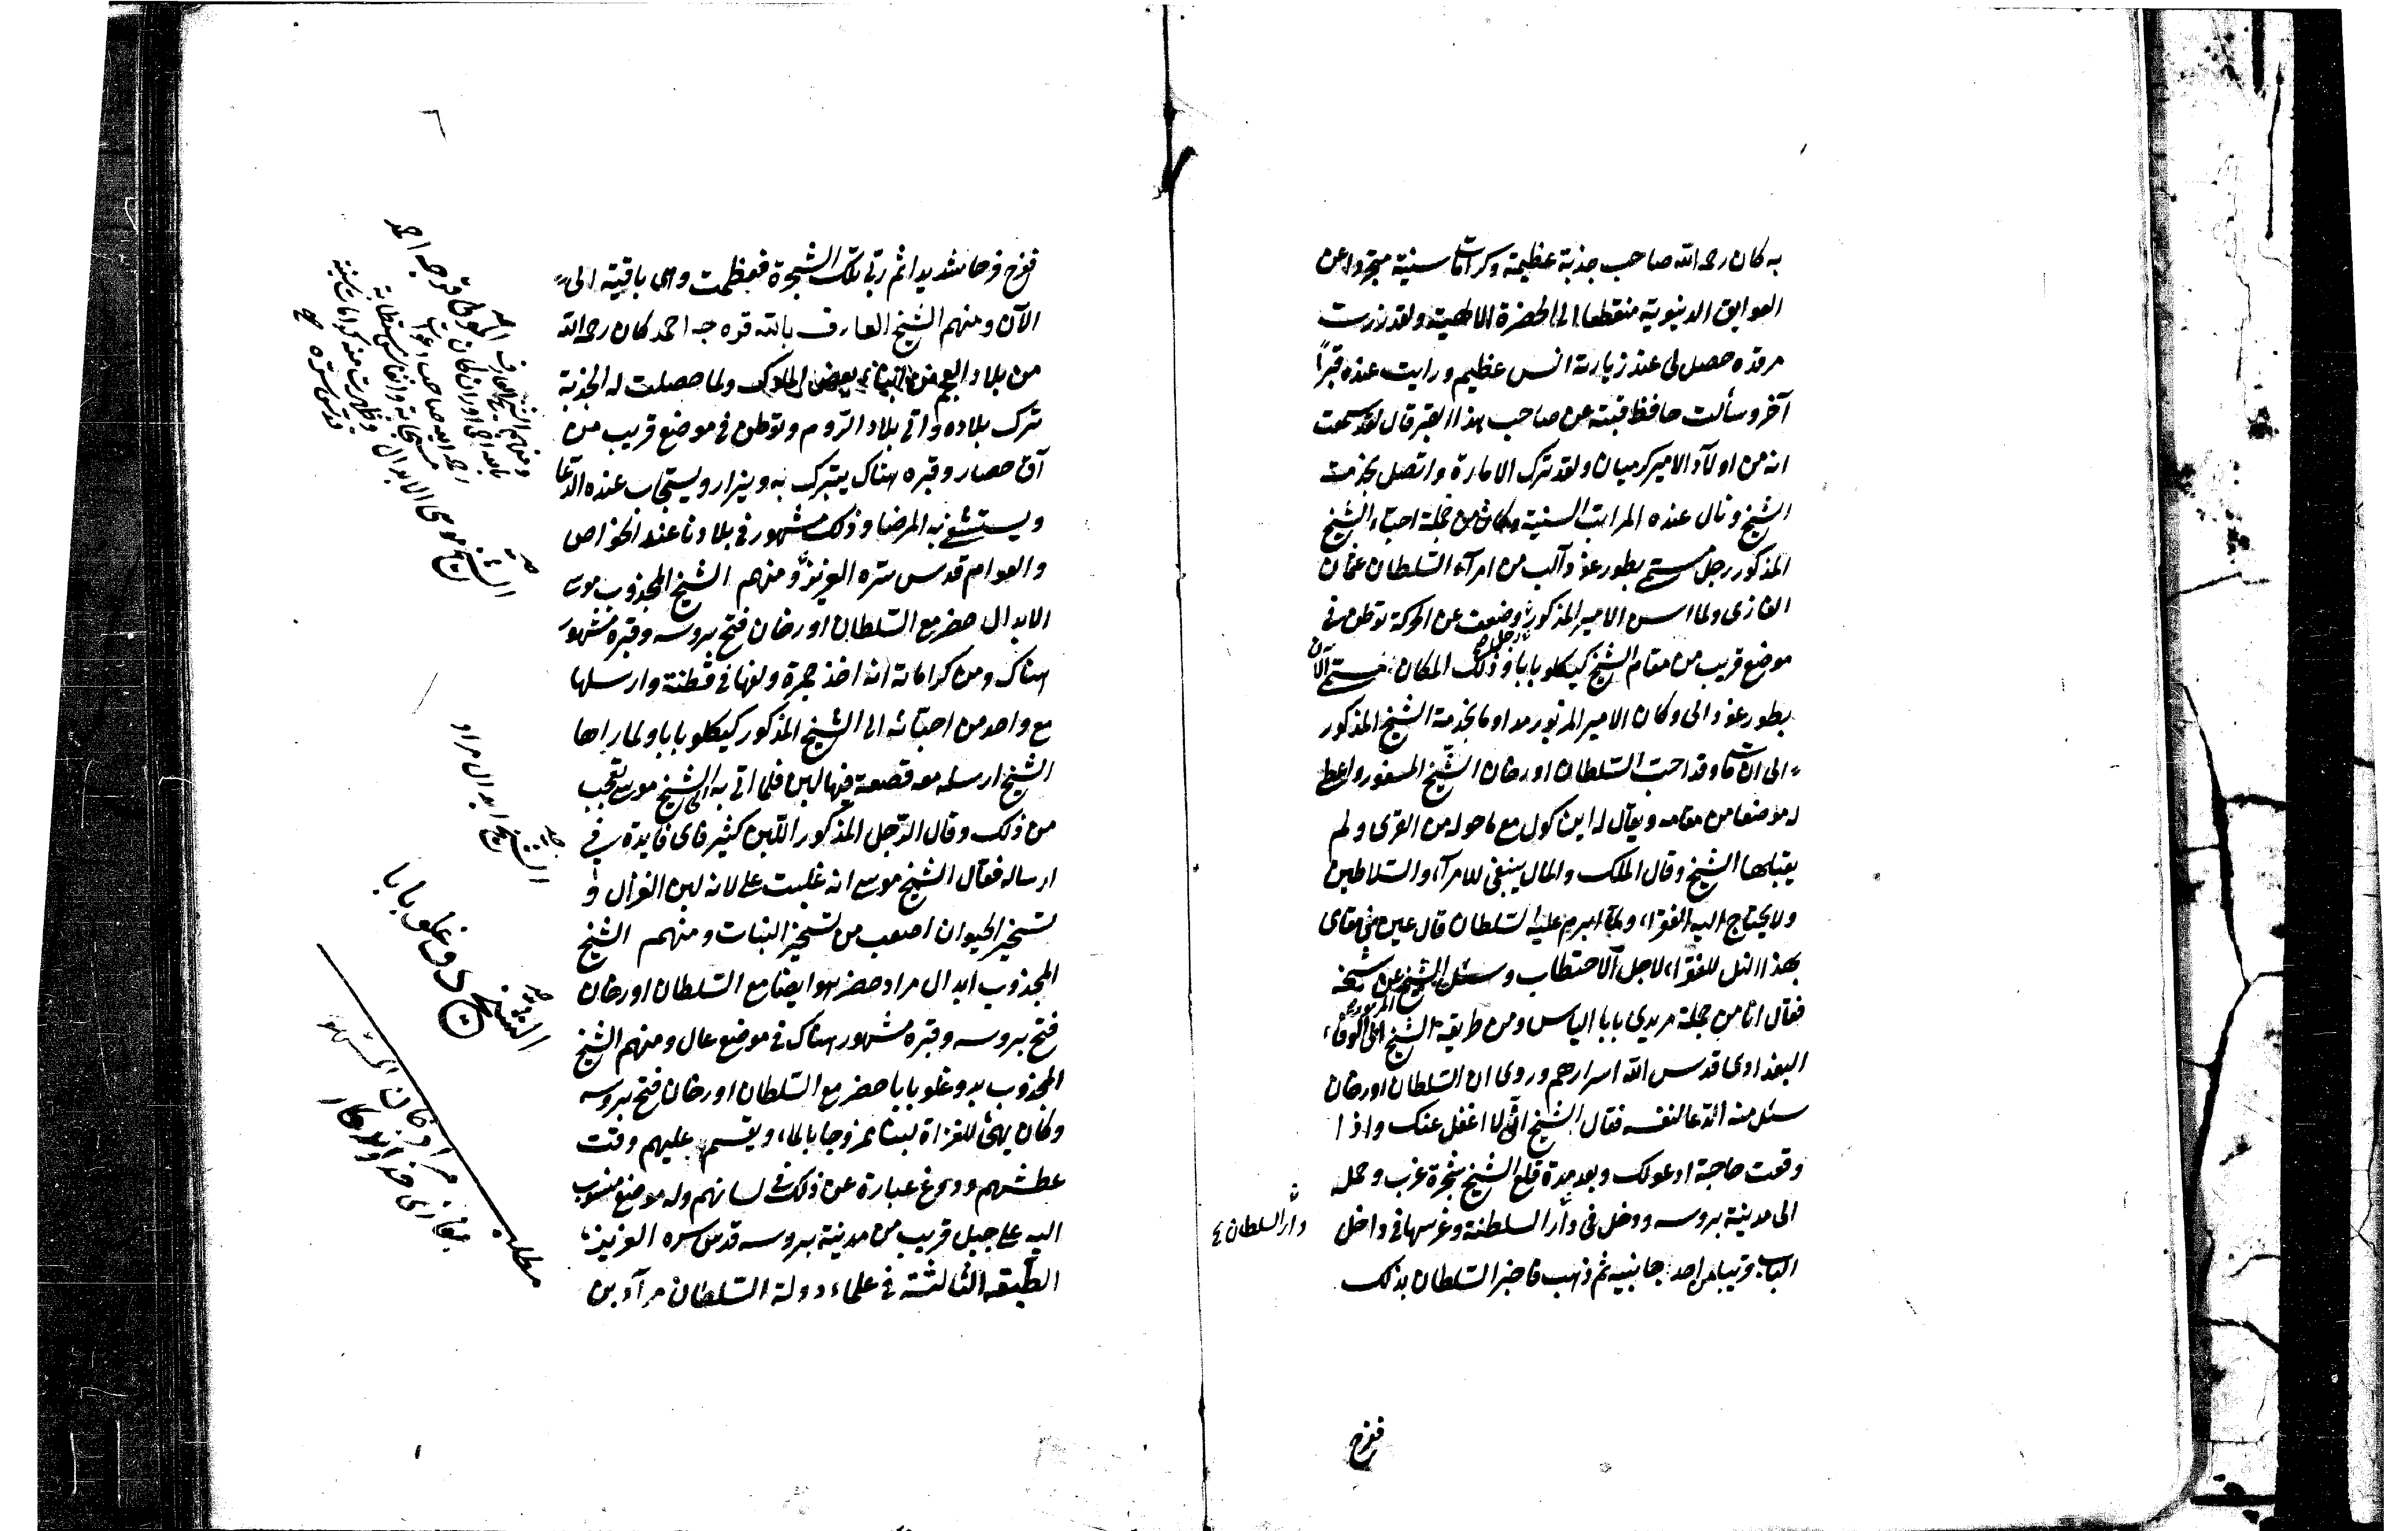 به كان رحمه الله صاحب جذبة عظيمة وكرامات سنية متجردا عن
العوايق الدنيوية منقطعا الى الحضرة الالهية ولقد زرت
مرقده حصل لى عند زيارته انس عظيم ورايت عنده قبرا
آخر وسألت حافظ قبته عن صاحب هذا القبر قال لقد سمعت
انه من اولاد الامير كرميان ولقد ترك الامارة واتصل بخدمت
الشيخ ونال عنده المراتب السنية وكان من جملة احباء الشيخ
المذكور رجل مسمى بطورغود آلب من امرآء السلطان عثمان
الغازى ولما اسن الامير المذكور وضعف عن الحركة توطن فى
موضع قريب من مقام الشيخ كيكلو بابا وذلك المكان مسمى الآن
بطورغود الى وكان الامير المزبور مداوما بخدمة الشيخ المذكور
الى ان مات وقد احب السلطان اورخان الشيخ المسفور واعطى
له موضعا من مقامه ويقال له اين كول مع ما حوله من القرى ولم
يقبلها الشيخ وقال الملك والمال ينبغى للامرآء والسلاطين
ولا يحتاج اليه الفقراء ولما ابرم عليه السلطان قال عين من مقاى
بهذا التل للفقراء لاجل الاحتطاب وسئل الشيخ المزبور عن شيخه
فقال انا من جملة مريدى بابا الياس ومن طريقة الشيخ ابى الوفاء
البغدادى قدس الله اسرارهم وروى ان السلطان اورخان
سئل منه الدعا لنفسه فقال الشيخ انى لا اغفل عنك واذا
وقعت حاجة ادعو لك وبعد مدة قلع الشيخ شجرة غرب وحمله
الى مدينة بروسه ودخل فى دار السلطنة وغرسها فى داخل
دار السلطان
الباب قريبا من احد جانبيه ثم ذهب فاخبر السلطان بذلك
ففرح
٦
ففرح فرحا شديدا ثم ربى تلك الشجرة فعظمت وهى باقية الى
الآن ومنهم الشيخ العارف بالله قره جه احمد كان رحمه الله
من بلاد العجم من ابناء بعض الملوك ولما حصلت له الجذبة
ترك بلاده واتى بلاد الروم وتوطن فى موضع قريب من
آق حصار وقبره هناك يتبرك به ويزار ويستجاب عنده الدعا
ويستشفى به المرضا وذلك مشهور فى بلادنا عند الخواص
والعوام قدس سره العزيز ومنهم الشيخ المجذوب موسى
الابدال حضر مع السلطان اورخان فتح بروسه وقبره مشهور
هناك ومن كراماته انه اخذ جمرة ولفها فى قطنة وارسلها
مع واحد من احبائه الى الشيخ المذكور كيكلو بابا ولما راها
الشيخ ارسل معه قصعة فيها لبن فلما اتى به الى الشيخ موسى تعجب
من ذلك وقال الرجل المذكور اللبن كثير فاى فايدة فى
ارساله فقال الشيخ موسى انه غلبت على لانه لبن الغزال و
تسخير الحيوان اصعب من تسخير النبات ومنهم الشيخ
المجذوب ابدال مراد حضر هو ايضا مع السلطان اورخان
فتح بروسه وقبره مشهور هناك فى موضع عال ومنهم الشيخ
المجذوب بدوغلو بابا حضر مع السلطان اورخان فتح بروسه
وكان يهئ للغزاة لبنا ممزوجا بالماء ويقسم عليهم وقت
عطشهم ودوغ عبارة عن ذلك فى لسانهم وله موضع منسوب
اليه على جبل قريب من مدينة بروسه قدس سره العزيز
الطبقة الثالثة فى علماء دولة السلطان مرآد بن
ومنهم الشيخ العارف
قره جه احمد
الشيخ موسى الابدال
الشيخ ابدال مراد
الشيخ دوغلو بابا
مطلب
مراد خان المشهور
بغازى خداوندكار